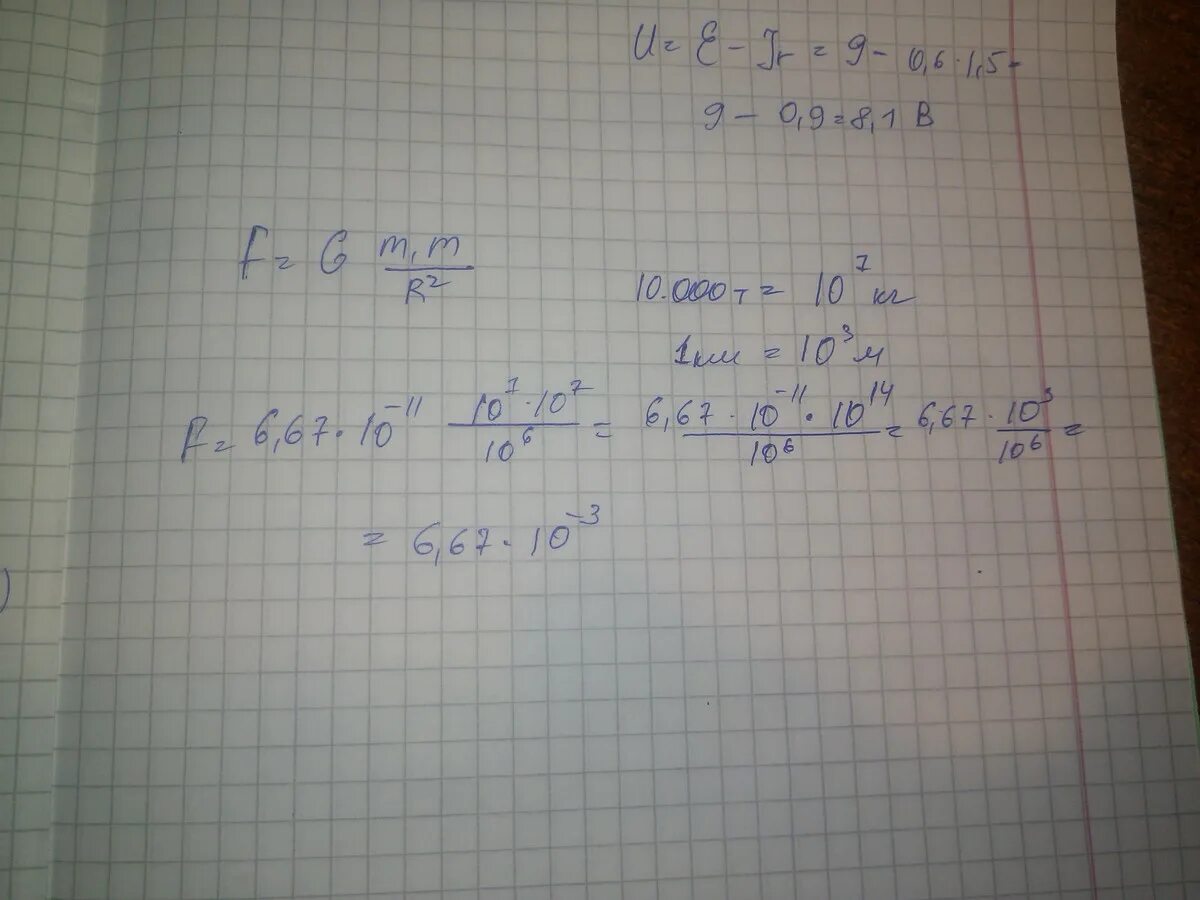 U = Ɛ − Ir = 9 − 0,6·1,5 =
9 − 0,9 = 8,1 В
F = G m,m / R²
10.000 т = 10⁷ кг
1 км = 10³ м
F = 6,67·10⁻¹¹ 10⁷·10⁷ / 10⁶ = 6,67·10⁻¹¹·10¹⁴ / 10⁶ = 6,67·10³ / 10⁶ =
= 6,67·10⁻³
)